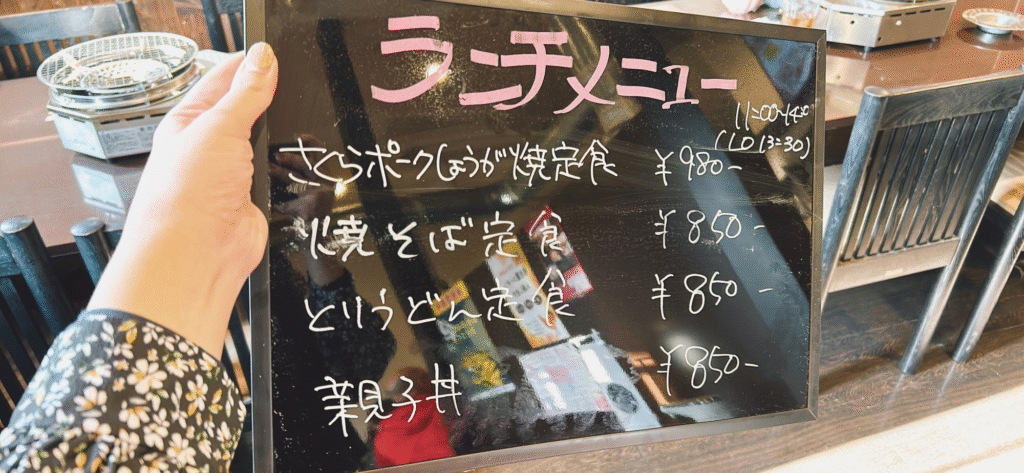 ランチメニュー
11:00~14:00
(LO 13:30)
さくらポークしょうが焼定食 ¥980-
焼そば定食 ¥850-
とりうどん定食 ¥850-
親子丼 ¥850-